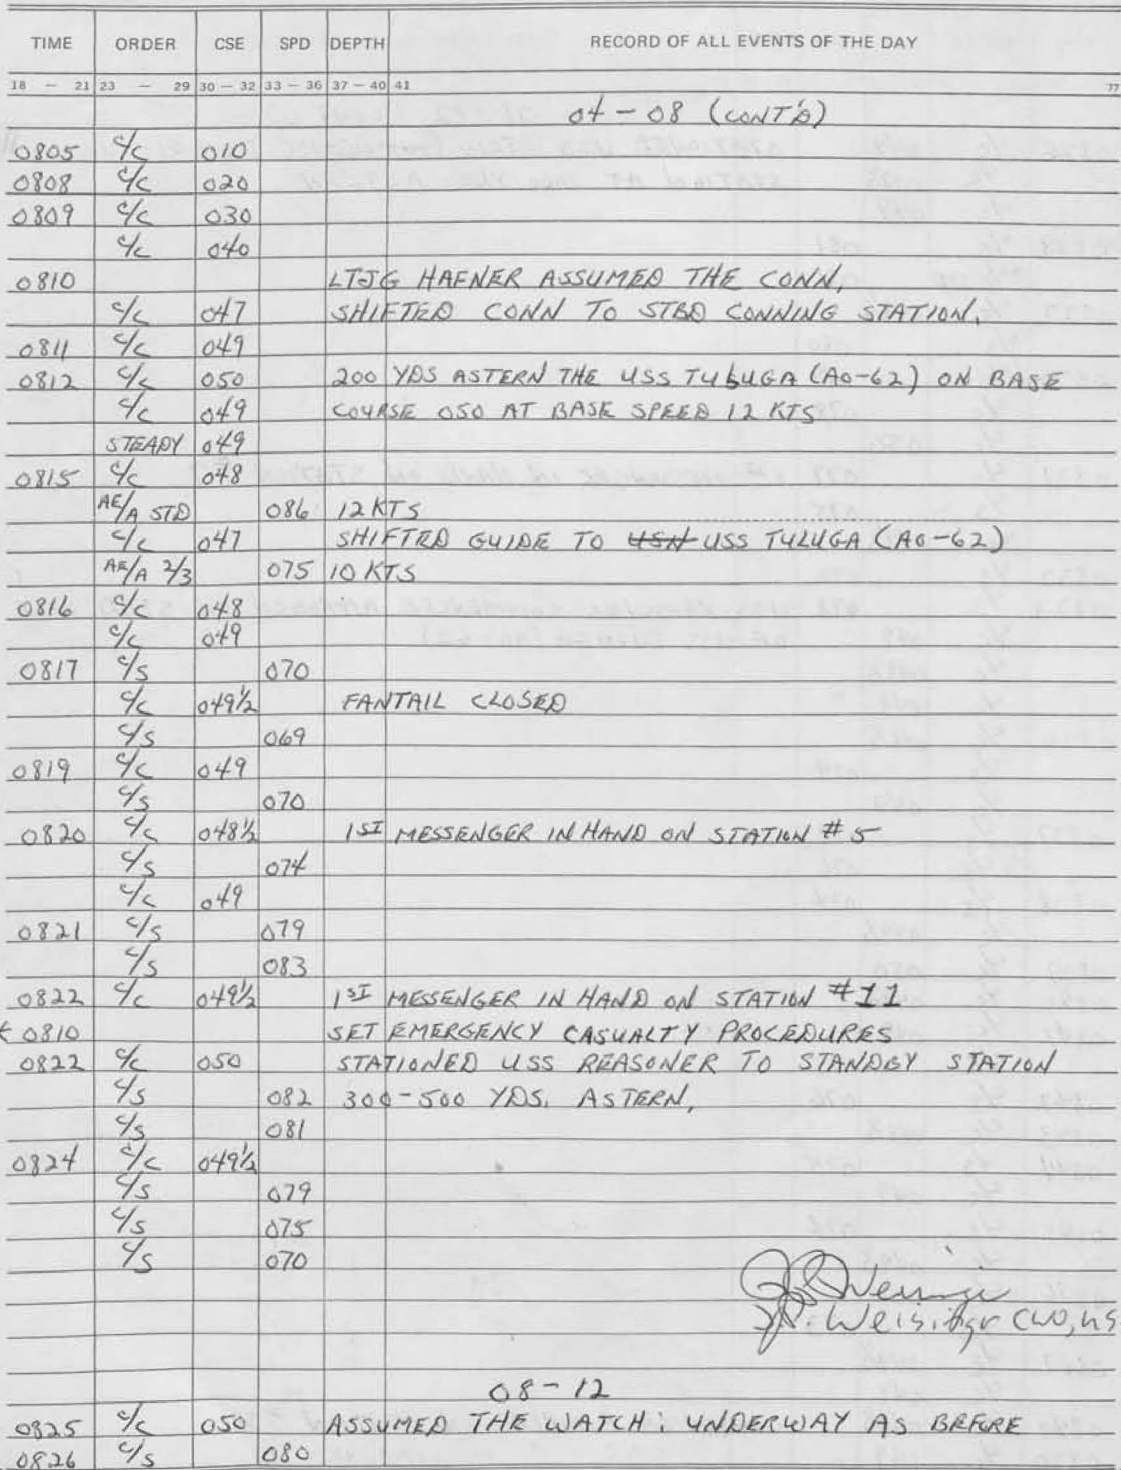 TIME ORDER CSE SPD DEPTH RECORD OF ALL EVENTS OF THE DAY
18 - 21 23 - 29 30 - 32 33 - 36 37 - 40 41 77
04 - 08 (CONT'D)
0805 C/C 010
0808 C/C 020
0809 C/C 030
C/C 040
0810 LTJG HAFNER ASSUMED THE CONN,
C/C 047 SHIFTED CONN TO STBD CONNING STATION.
0811 C/C 049
0812 C/C 050 200 YDS ASTERN THE USS TULUGA (AO-62) ON BASE
C/C 049 COURSE 050 AT BASE SPEED 12 KTS
STEADY 049
0815 C/C 048
AE/A STD 086 12 KTS
C/C 047 SHIFTED GUIDE TO USN USS TULUGA (AO-62)
AE/A 2/3 075 10 KTS
0816 C/C 048
C/C 049
0817 C/S 070
C/C 049½ FANTAIL CLOSED
C/S 069
0819 C/C 049
C/S 070
0820 C/C 048½ 1ST MESSENGER IN HAND ON STATION # 5
C/S 074
C/C 049
0821 C/S 079
C/S 083
0822 C/C 049½ 1ST MESSENGER IN HAND ON STATION #11
* 0810 SET EMERGENCY CASUALTY PROCEDURES
0822 C/C 050 STATIONED USS REASONER TO STANDBY STATION
C/S 082 300-500 YDS. ASTERN,
C/S 081
0824 C/C 049½
C/S 079
C/S 075
C/S 070
CWO, US
08 - 12
0825 C/C 050 ASSUMED THE WATCH: UNDERWAY AS BEFORE
0826 C/S 080